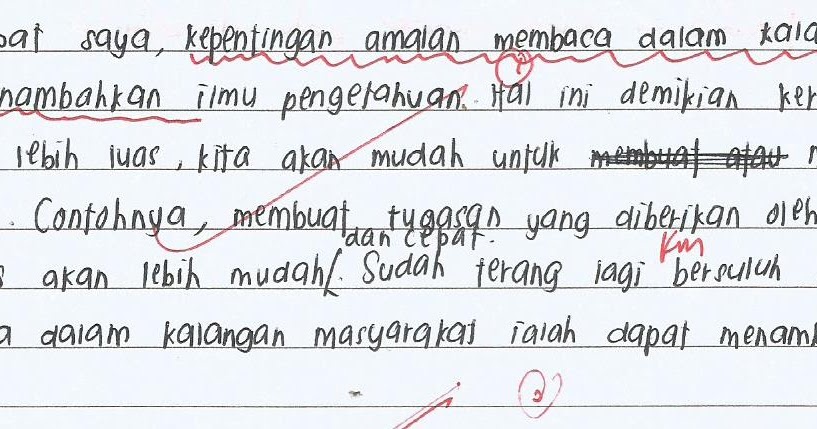 pat saya, kepentingan amalan membaca dalam kala
nambahkan ilmu pengetahuan. Hal ini demikian ker
lebih luas, kita akan mudah untuk membuat atau
. Contohnya, membuat tugasan yang diberikan oleh
dan cepat.
Km
akan lebih mudah/. Sudah terang lagi bersuluh
a dalam kalangan masyarakat ialah dapat menam